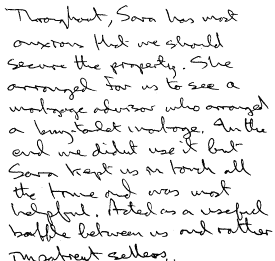 Throughout, Sara has most
anxious that we should
secure the property. She
arranged for us to see a
mortgage advisor who arranged
a buy to let mortgage. In the
end we didnt use it but
Sara kept us in touch all
the time and was most
helpful. Acted as a useful
baffle between us and rather
impatient sellers.